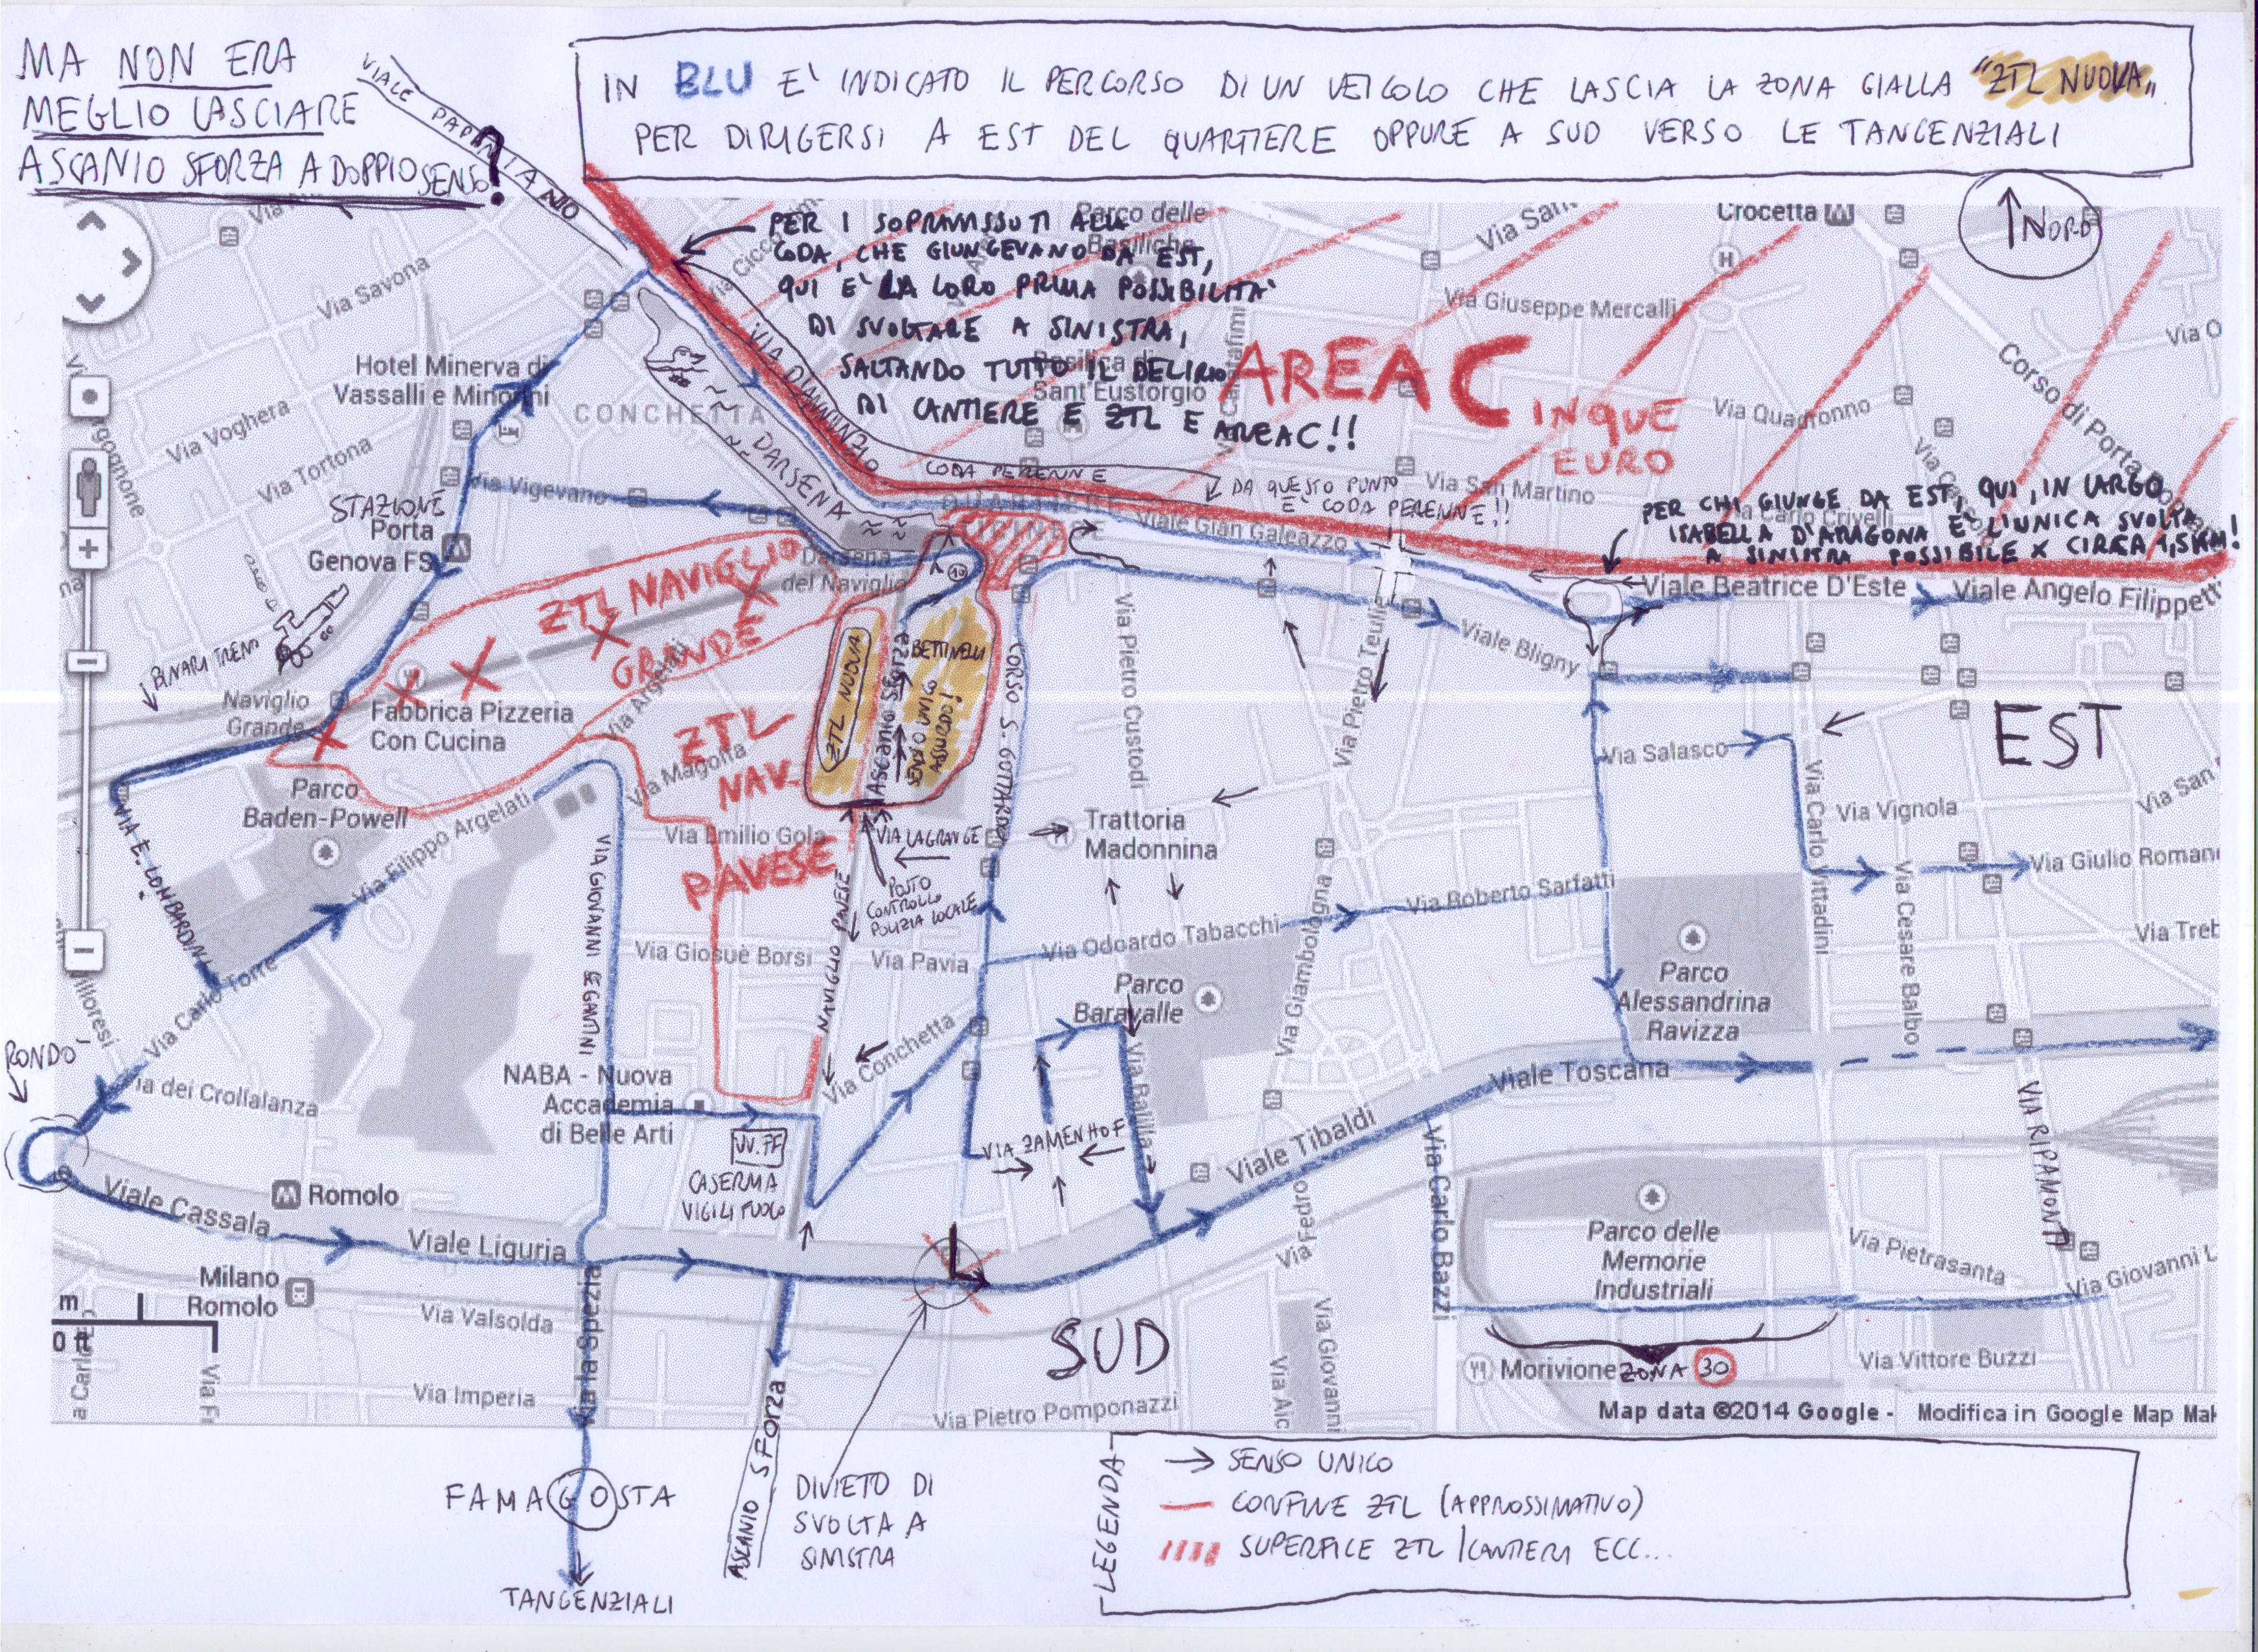 MA NON ERA
MEGLIO LASCIARE
ASCANIO SFORZA A DOPPIO SENSO?
VIALE PAPINIANO
IN BLU E' INDICATO IL PERCORSO DI UN VEICOLO CHE LASCIA LA ZONA GIALLA "ZTL NUOVA"
PER DIRIGERSI A EST DEL QUARTIERE OPPURE A SUD VERSO LE TANGENZIALI
NORD
PER I SOPRAVISSUTI ALLA
CODA, CHE GIUNGEVANO DA EST,
QUI E' LA LORO PRIMA POSSIBILITA'
DI SVOLTARE A SINISTRA,
SALTANDO TUTTO IL DELIRIO
DI CANTIERE E ZTL E AREA C!!
Parco delle
Basiliche
Crocetta
Via Savona
Via Giuseppe Mercalli
Corso di Porta
Hotel Minerva di
Vassalli e Minorini
Basilica di
Sant'Eustorgio
CONCHETTA
VIA D'ANNUNZIO
AREA CINQUE
EURO
Via Quadronno
Via Voghera
Via Tortona
DARSENA
CODA PERENNE
DA QUESTO PUNTO
E' CODA PERENNE!!
Via San Martino
Via Vigevano
STAZIONE
Porta
Genova FS
Darsena
del Naviglio
Viale Gian Galeazzo
PER CHI GIUNGE DA EST, QUI, IN LARGO
ISABELLA D'ARAGONA E' L'UNICA SVOLTA
A SINISTRA POSSIBILE X CIRCA 1,5 KM!
Via Carlo Crivelli
Viale Beatrice D'Este
Viale Angelo Filippetti
10
ZTL NAVIGLIO
GRANDE
BINARI TRENO
Naviglio
Grande
Fabbrica Pizzeria
Con Cucina
Via Argelati
ZTL NUOVA
Ascanio Sforza
BETTINELLI
SENSO UNICO
ASSURDO!
CORSO S. GOTTARDO
Via Pietro Custodi
Via Pietro Teulié
Viale Bligny
EST
ZTL
NAV.
PAVESE
Via Magolfa
Via Emilio Gola
VIA LAGRANGE
POSTO
CONTROLLO
POLIZIA LOCALE
NAVIGLIO PAVESE
Trattoria
Madonnina
Via Salasco
Via Vignola
Via Carlo Vittadini
Via Giulio Roman
Via Cesare Balbo
Parco
Baden-Powell
Via Filippo Argelati
VIA E. LOMBARDINI
VIA GIOVANNI SEGANTINI
Via Carlo Torre
Via Giosuè Borsi
Via Pavia
Via Odoardo Tabacchi
Via Roberto Sarfatti
Via Giambologna
Parco
Baravalle
Parco
Alessandrina
Ravizza
RONDO'
Via dei Crollalanza
NABA - Nuova
Accademia
di Belle Arti
Via Conchetta
Via Balilla
VIA ZAMENHOF
Viale Toscana
Viale Tibaldi
VIA RIPAMONTI
VV.FF
CASERMA
VIGILI FUOCO
Viale Cassala
Romolo
Viale Liguria
Milano
Romolo
Via Valsolda
Via la Spezia
Via Imperia
Via Carlo Bazzi
Parco delle
Memorie
Industriali
Via Pietrasanta
Via Giovanni L
SUD
Morivione
ZONA 30
Via Vittore Buzzi
Via Pietro Pomponazzi
Map data ©2014 Google - Modifica in Google Map Mak
ASCANIO SForza
FAMAGOSTA
TANGENZIALI
DIVIETO DI
SVOLTA A
SINISTRA
LEGENDA
SENSO UNICO
CONFINE ZTL (APPROSSIMATIVO)
SUPERFICE ZTL / CANTIERI ECC...